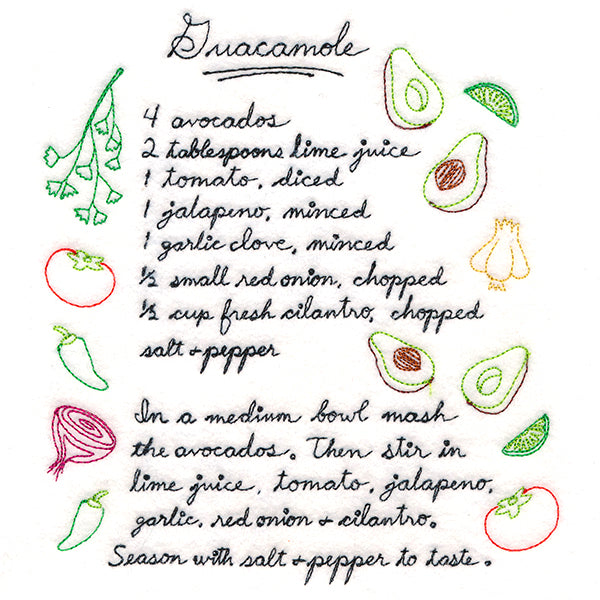 Guacamole
4 avocados
2 tablespoons lime juice
1 tomato, diced
1 jalapeno, minced
1 garlic clove, minced
1/2 small red onion, chopped
1/2 cup fresh cilantro, chopped
salt + pepper
In a medium bowl mash
the avocados. Then stir in
lime juice, tomato, jalapeno,
garlic, red onion + cilantro.
Season with salt + pepper to taste.